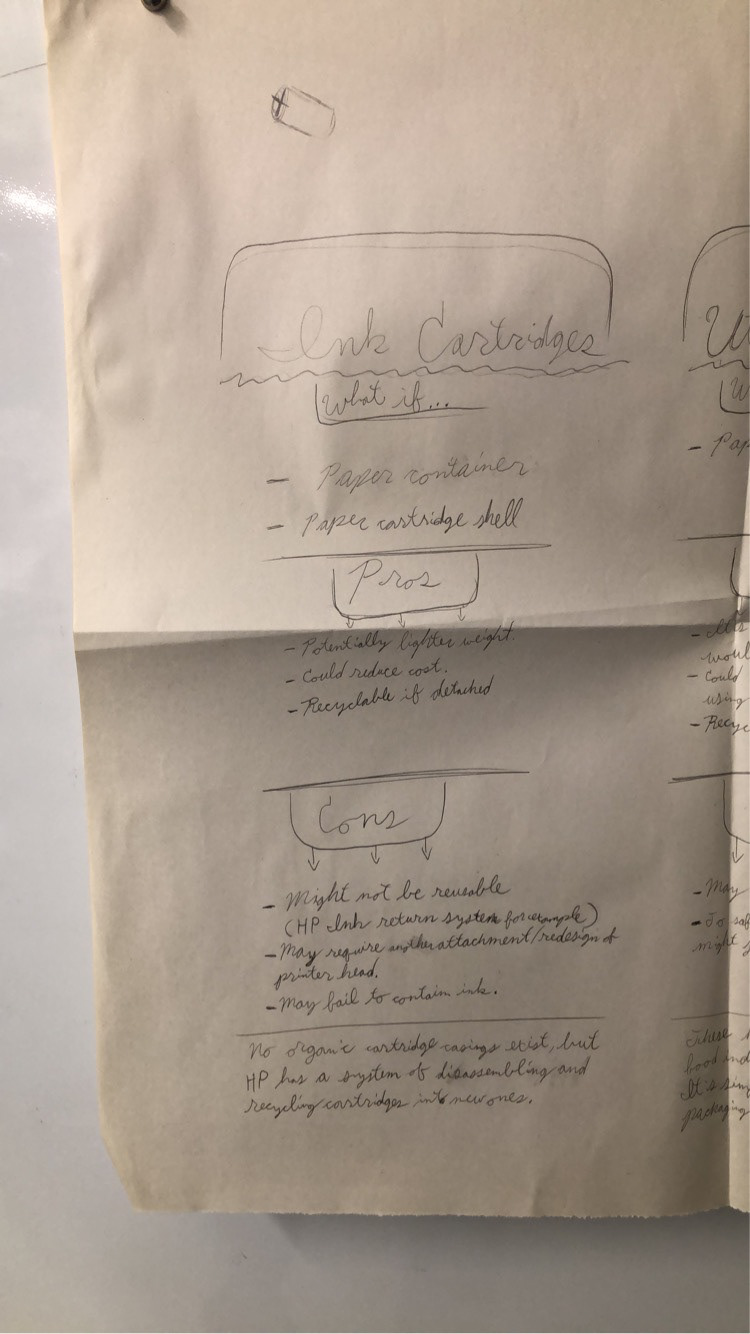 Ink Cartridges
What if...
- Paper container
- Paper cartridge shell
Pros
- Potentially lighter weight.
- Could reduce cost.
- Recyclable if detached
Cons
- Might not be reusable
(HP Ink return system for example)
- May require another attachment/redesign of
printer head.
- May fail to contain ink.
No organic cartridge casings exist, but
HP has a system of disassembling and
recycling cartridges into new ones.
Ut
W
- Pap
woul
- Could
using
- Recyc
- May
- To saf
might
These
food and
It's sim
packaging